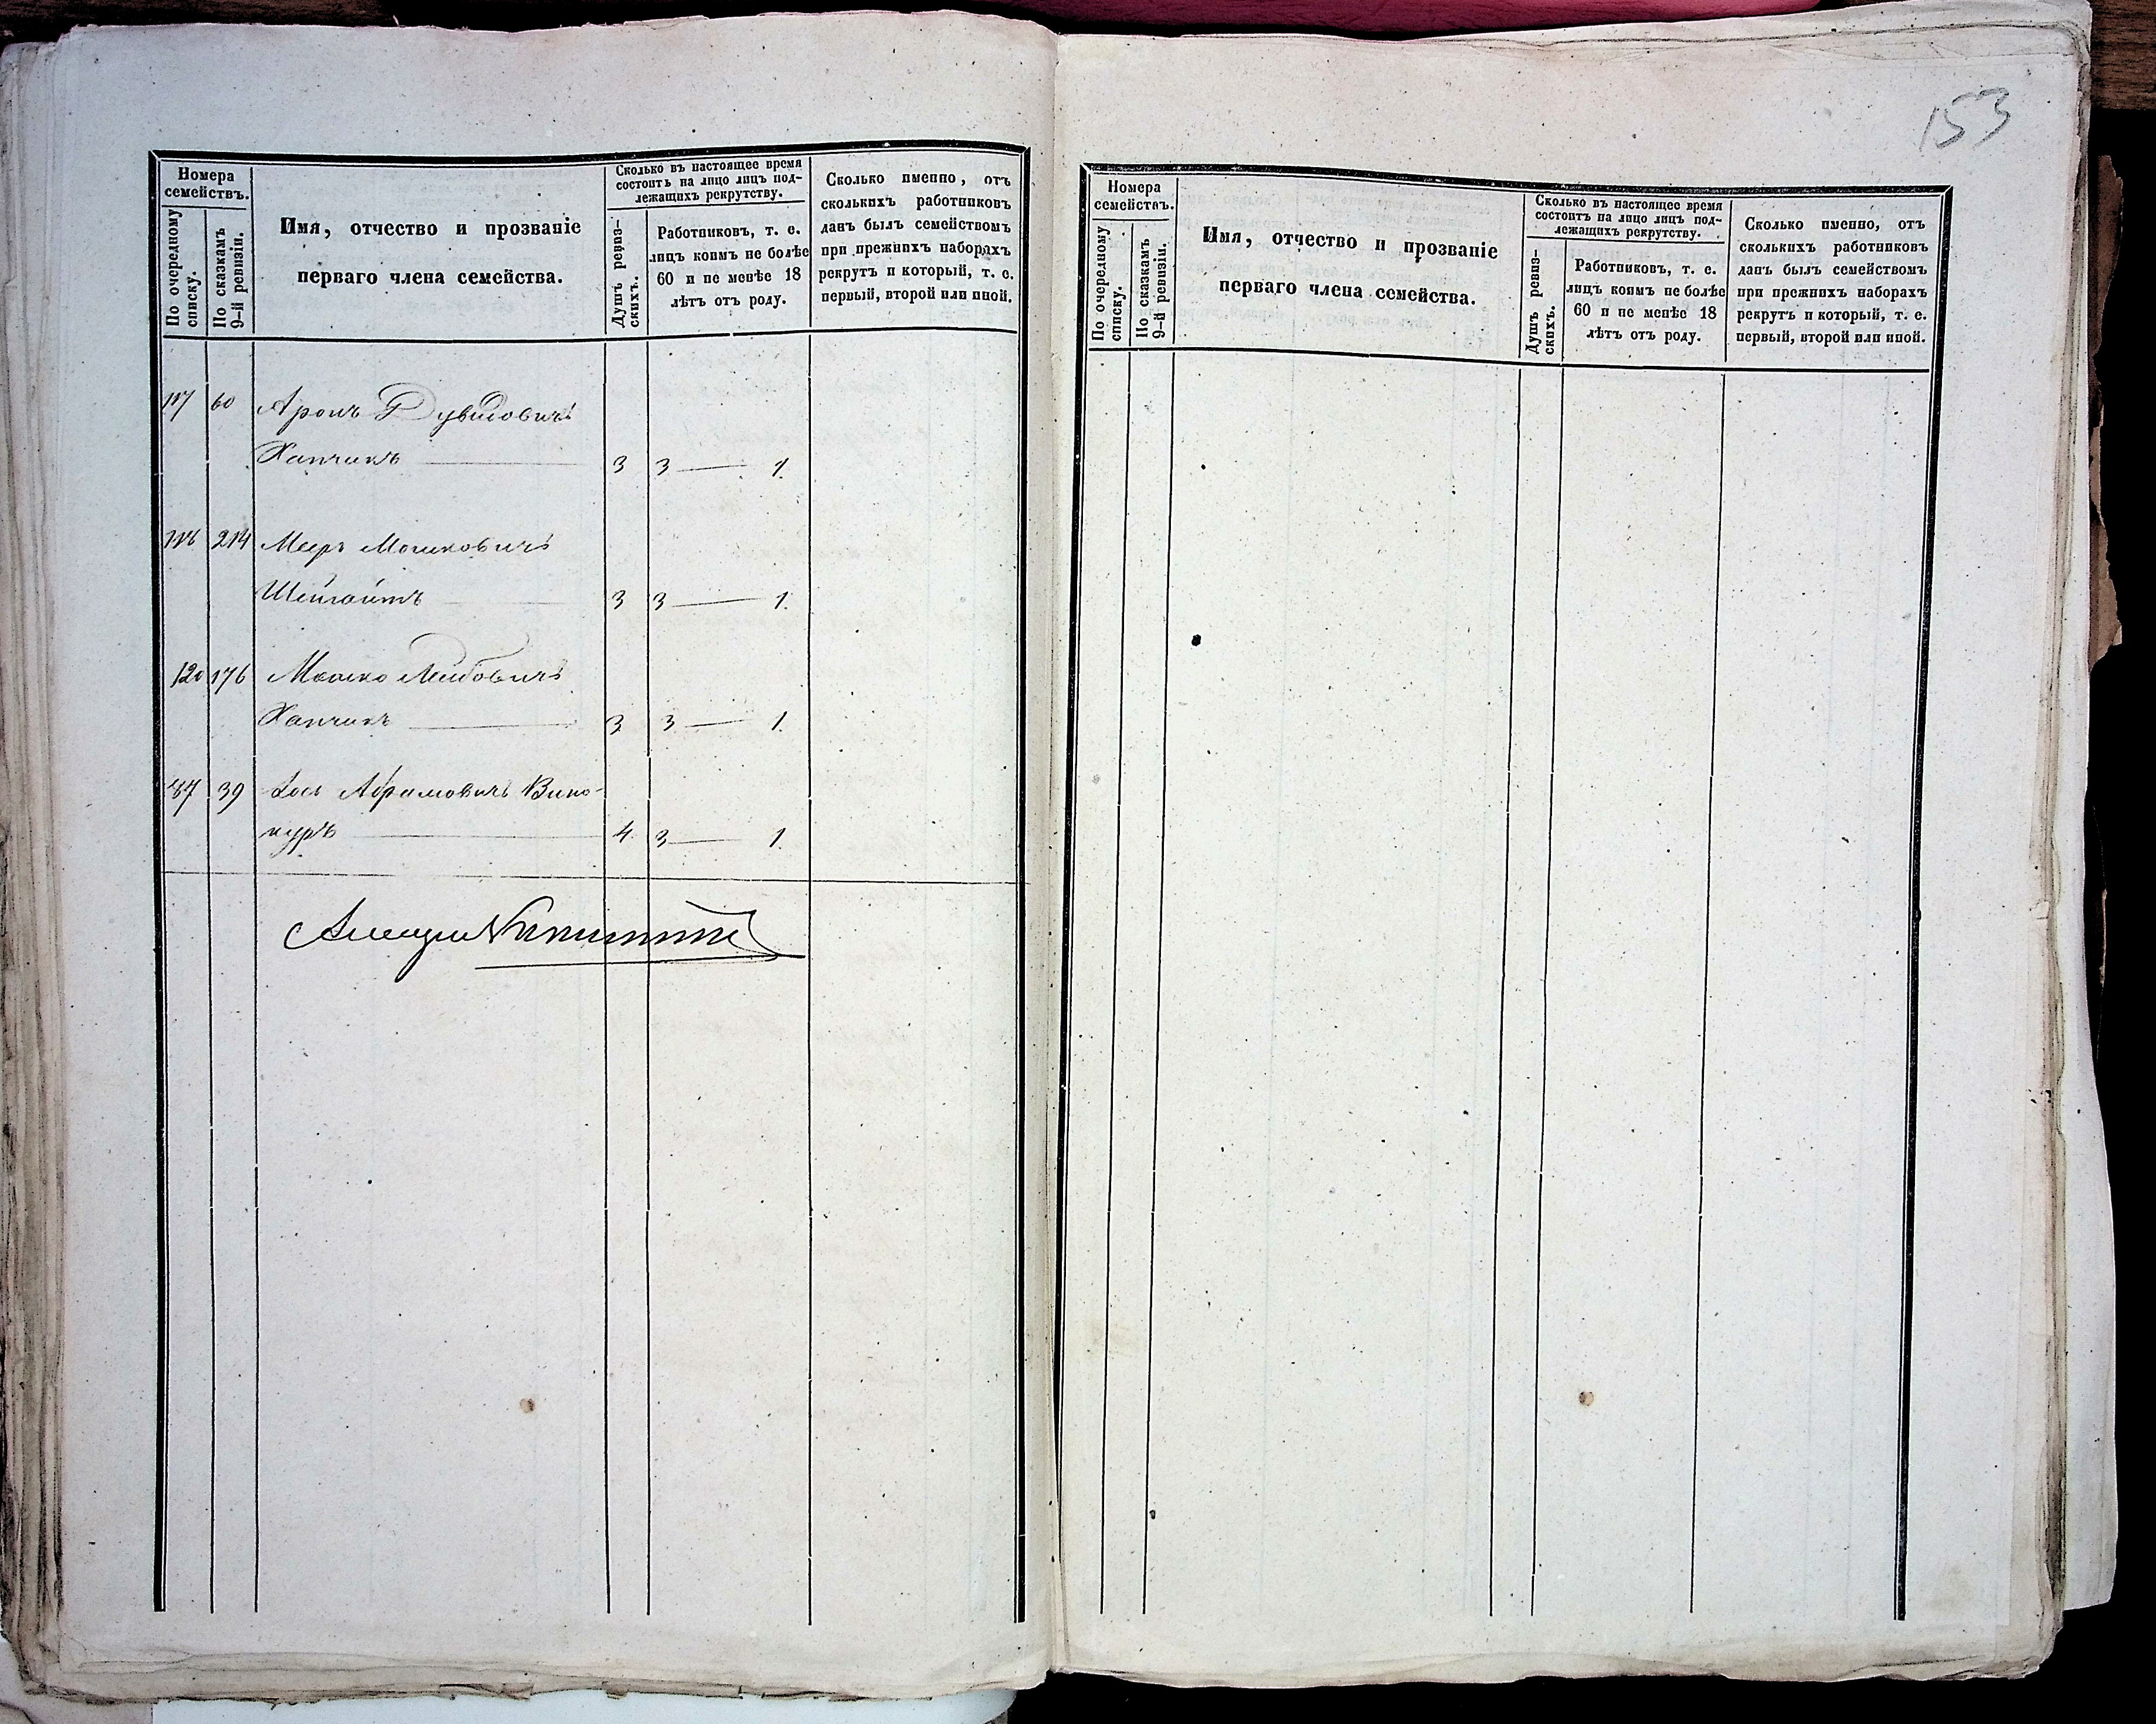 153
Номера
семействъ.
По очередному
списку.
По сказкамъ
9-й ревизіи.
Имя, отчество и прозваніе
перваго члена семейства.
Сколько въ настоящее время
состоитъ на лицо лицъ под-
лежащихъ рекрутству.
Душъ ревиз-
скихъ.
Работниковъ, т. е.
лицъ коимъ не болѣе
60 и не менѣе 18
лѣтъ отъ роду.
Сколько именно, отъ
сколькихъ работниковъ
данъ былъ семействомъ
при прежнихъ наборахъ
рекрутъ и который, т. е.
первый, второй или иной.
117 60 Аронъ Дувидовичъ
Хапчикъ 3 3 — 1.
214 Меръ Мошковичъ
3 3 — 1.
120 176 Мошко Лейбовичъ
Хапчикъ 3 3 — 1.
87 39 Абрамовичъ Вино-
куръ 4 3 — 1
Номера
семействъ.
По очередному
списку.
По сказкамъ
9-й ревизіи.
Имя, отчество и прозваніе
перваго члена семейства.
Сколько въ настоящее время
состоитъ на лицо лицъ под-
лежащихъ рекрутству.
Душъ ревиз-
скихъ.
Работниковъ, т. е.
лицъ коимъ не болѣе
60 и не менѣе 18
лѣтъ отъ роду.
Сколько именно, отъ
сколькихъ работниковъ
данъ былъ семействомъ
при прежнихъ наборахъ
рекрутъ и который, т. е.
первый, второй или иной.